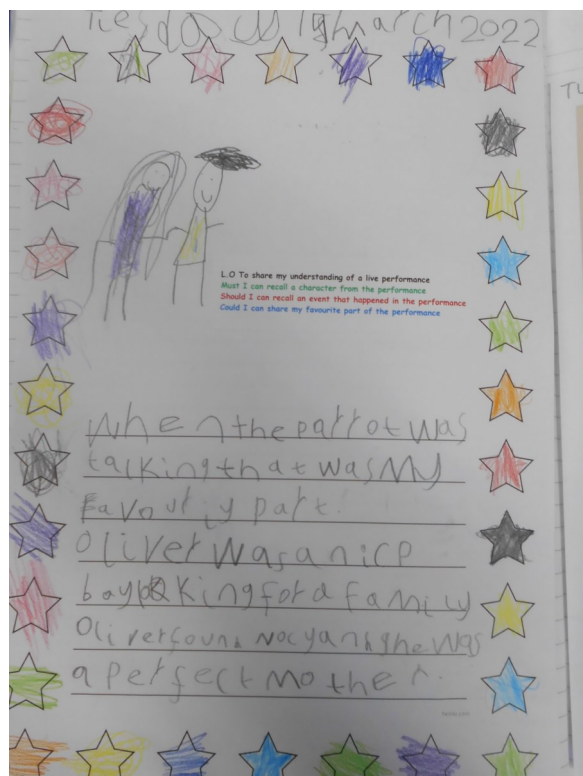 march 2022
L.O To share my understanding of a live performance
Must I can recall a character from the performance
Should I can recall an event that happened in the performance
Could I can share my favourite part of the performance
When the parrot was
talking that was My
favourity part.
Oliver was a nice
boy looking for a family
Oliver found Nocyandghe was
a perfect mother.
TU